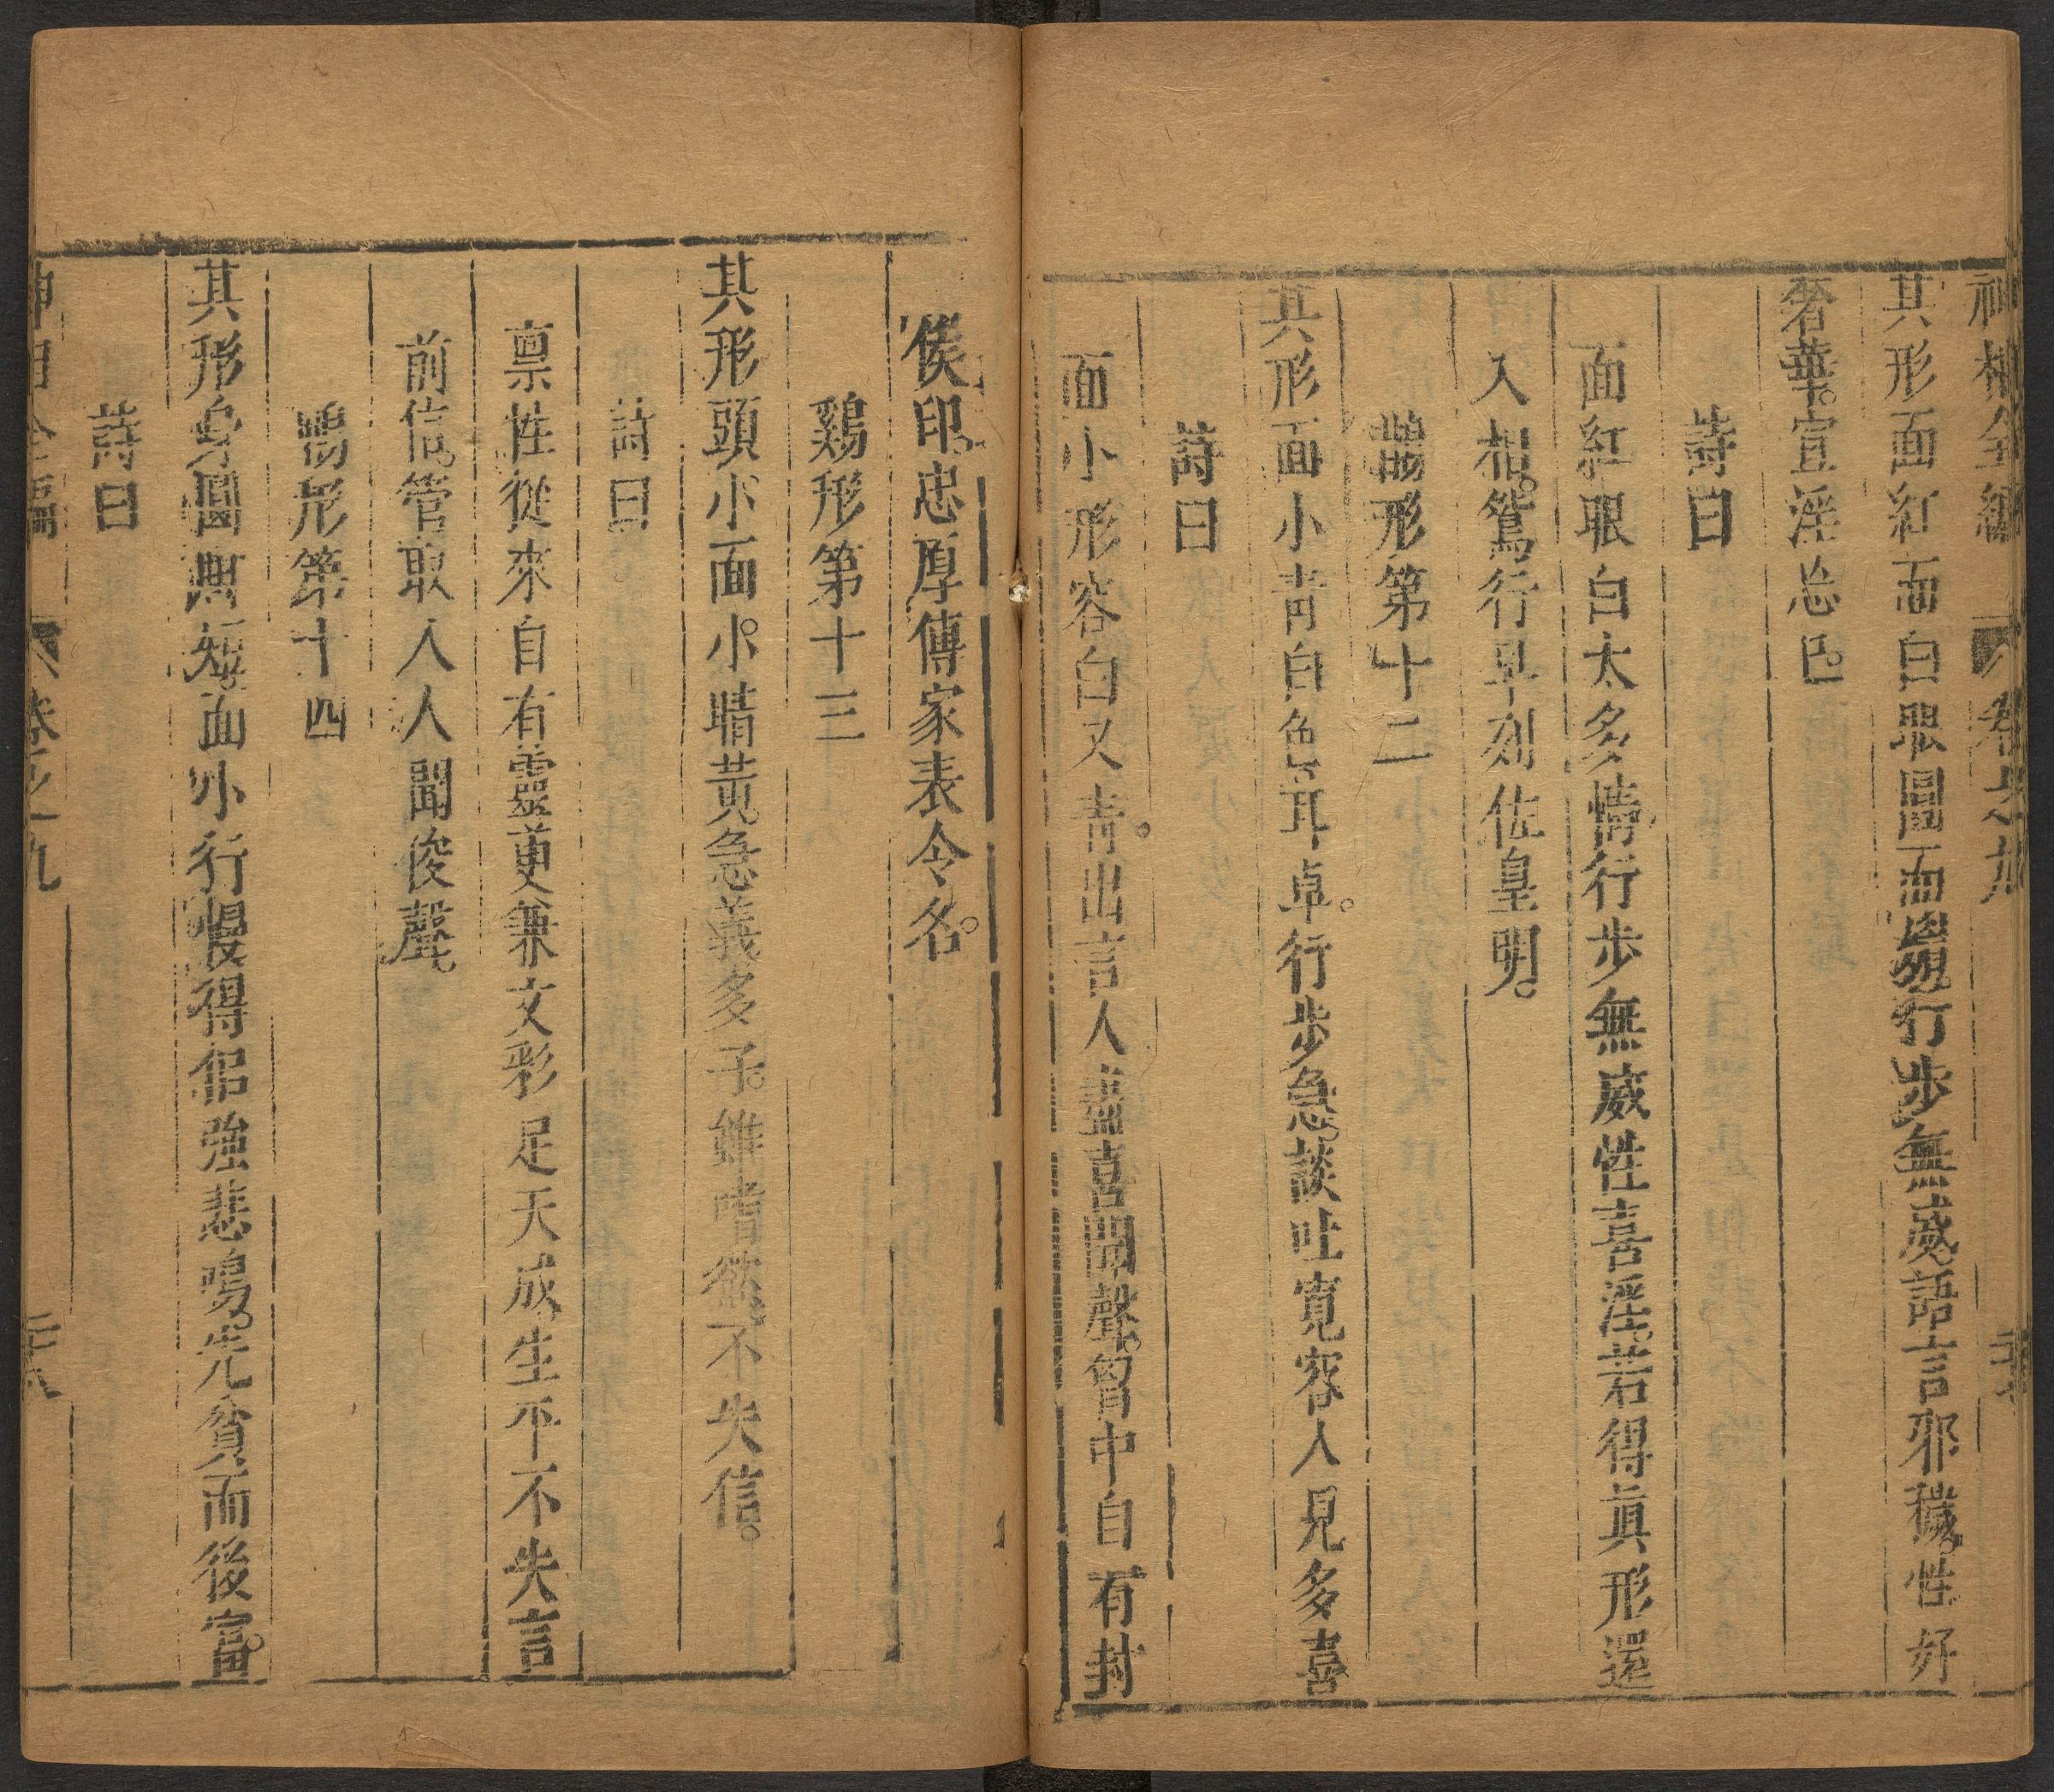 神相全編 卷之九 二十七
其形面紅面白眼圓而嶺頭行步無威語言邪穢性好
奢華宣淫恣色
詩曰
面紅眼白太多情行步無威性喜淫若得眞形還
入相鴛行早列佐皇明
鵲形第十二
其形面小青白色耳卓行步急談吐寬容人見多喜
詩曰
面小形容白又青出言人盡喜聞聲胷中自有封
侯印忠厚傳家表令名
鷄形第十三
其形頭小面小小睛黃急義多子雖嗜慾不失信
詩曰
禀性從來自有靈更兼文彩足天成生平不失言
前信管取入人聞俊聲
形第十四
其形身圓 短面小行慢得倨強悲鳴先貧而後富
詩曰
神相全編 卷之九 二十八